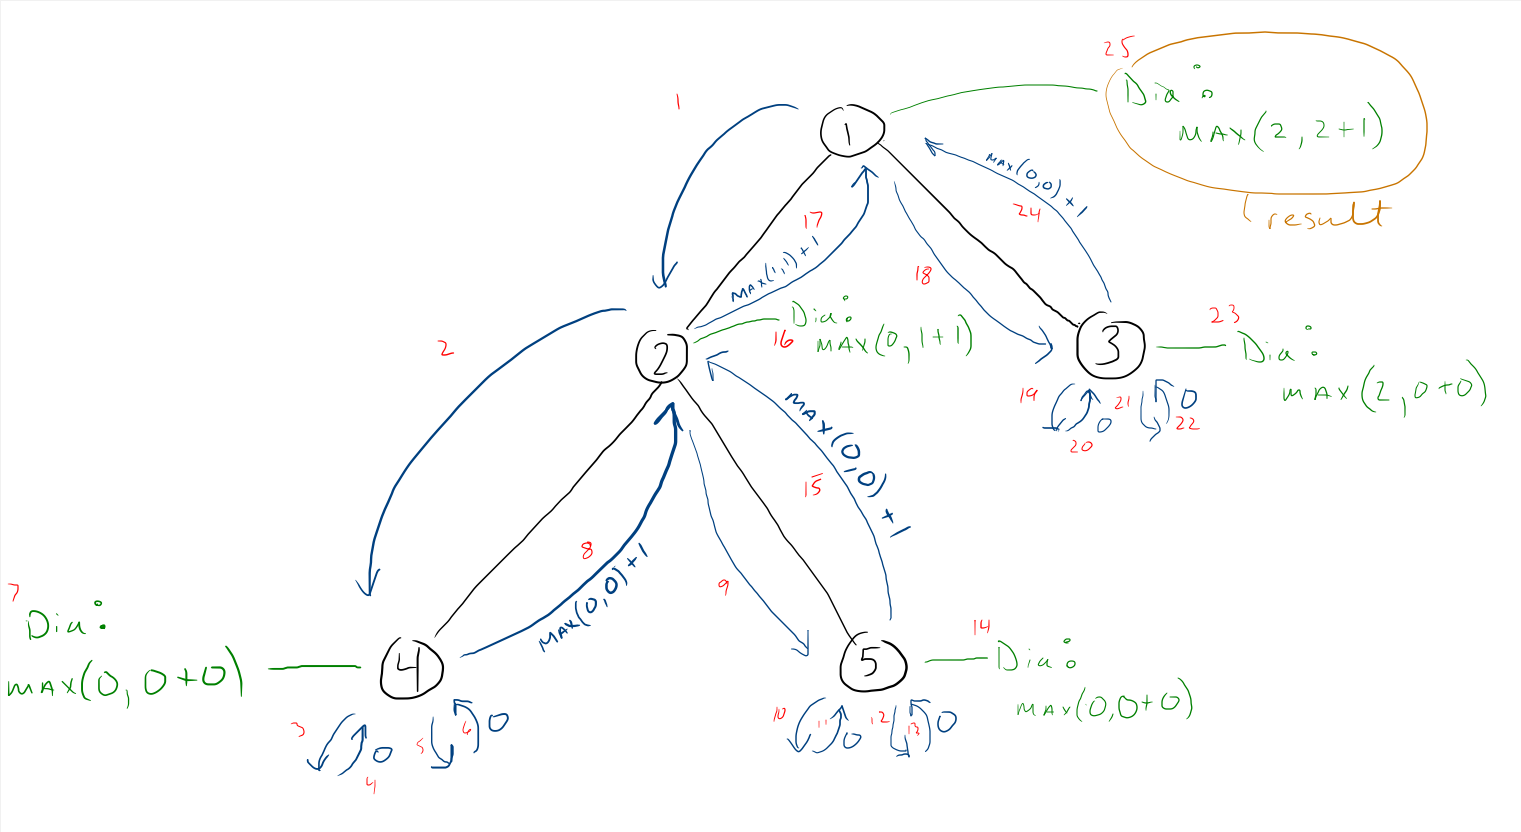 25
Dia:
MAX(2, 2+1)
result
1
1
MAX(0,0)+1
24
17
MAX(1,1)+1
18
2
2
Dia:
16
MAX(0, 1+1)
3
23
Dia:
MAX(2, 0+0)
19
20
0
21
0
22
MAX(0,0)+1
15
8
MAX(0,0)+1
9
7
Dia:
MAX(0, 0+0)
4
3
0
4
5
6
0
5
14
Dia:
MAX(0,0+0)
10
11
0
12
13
0